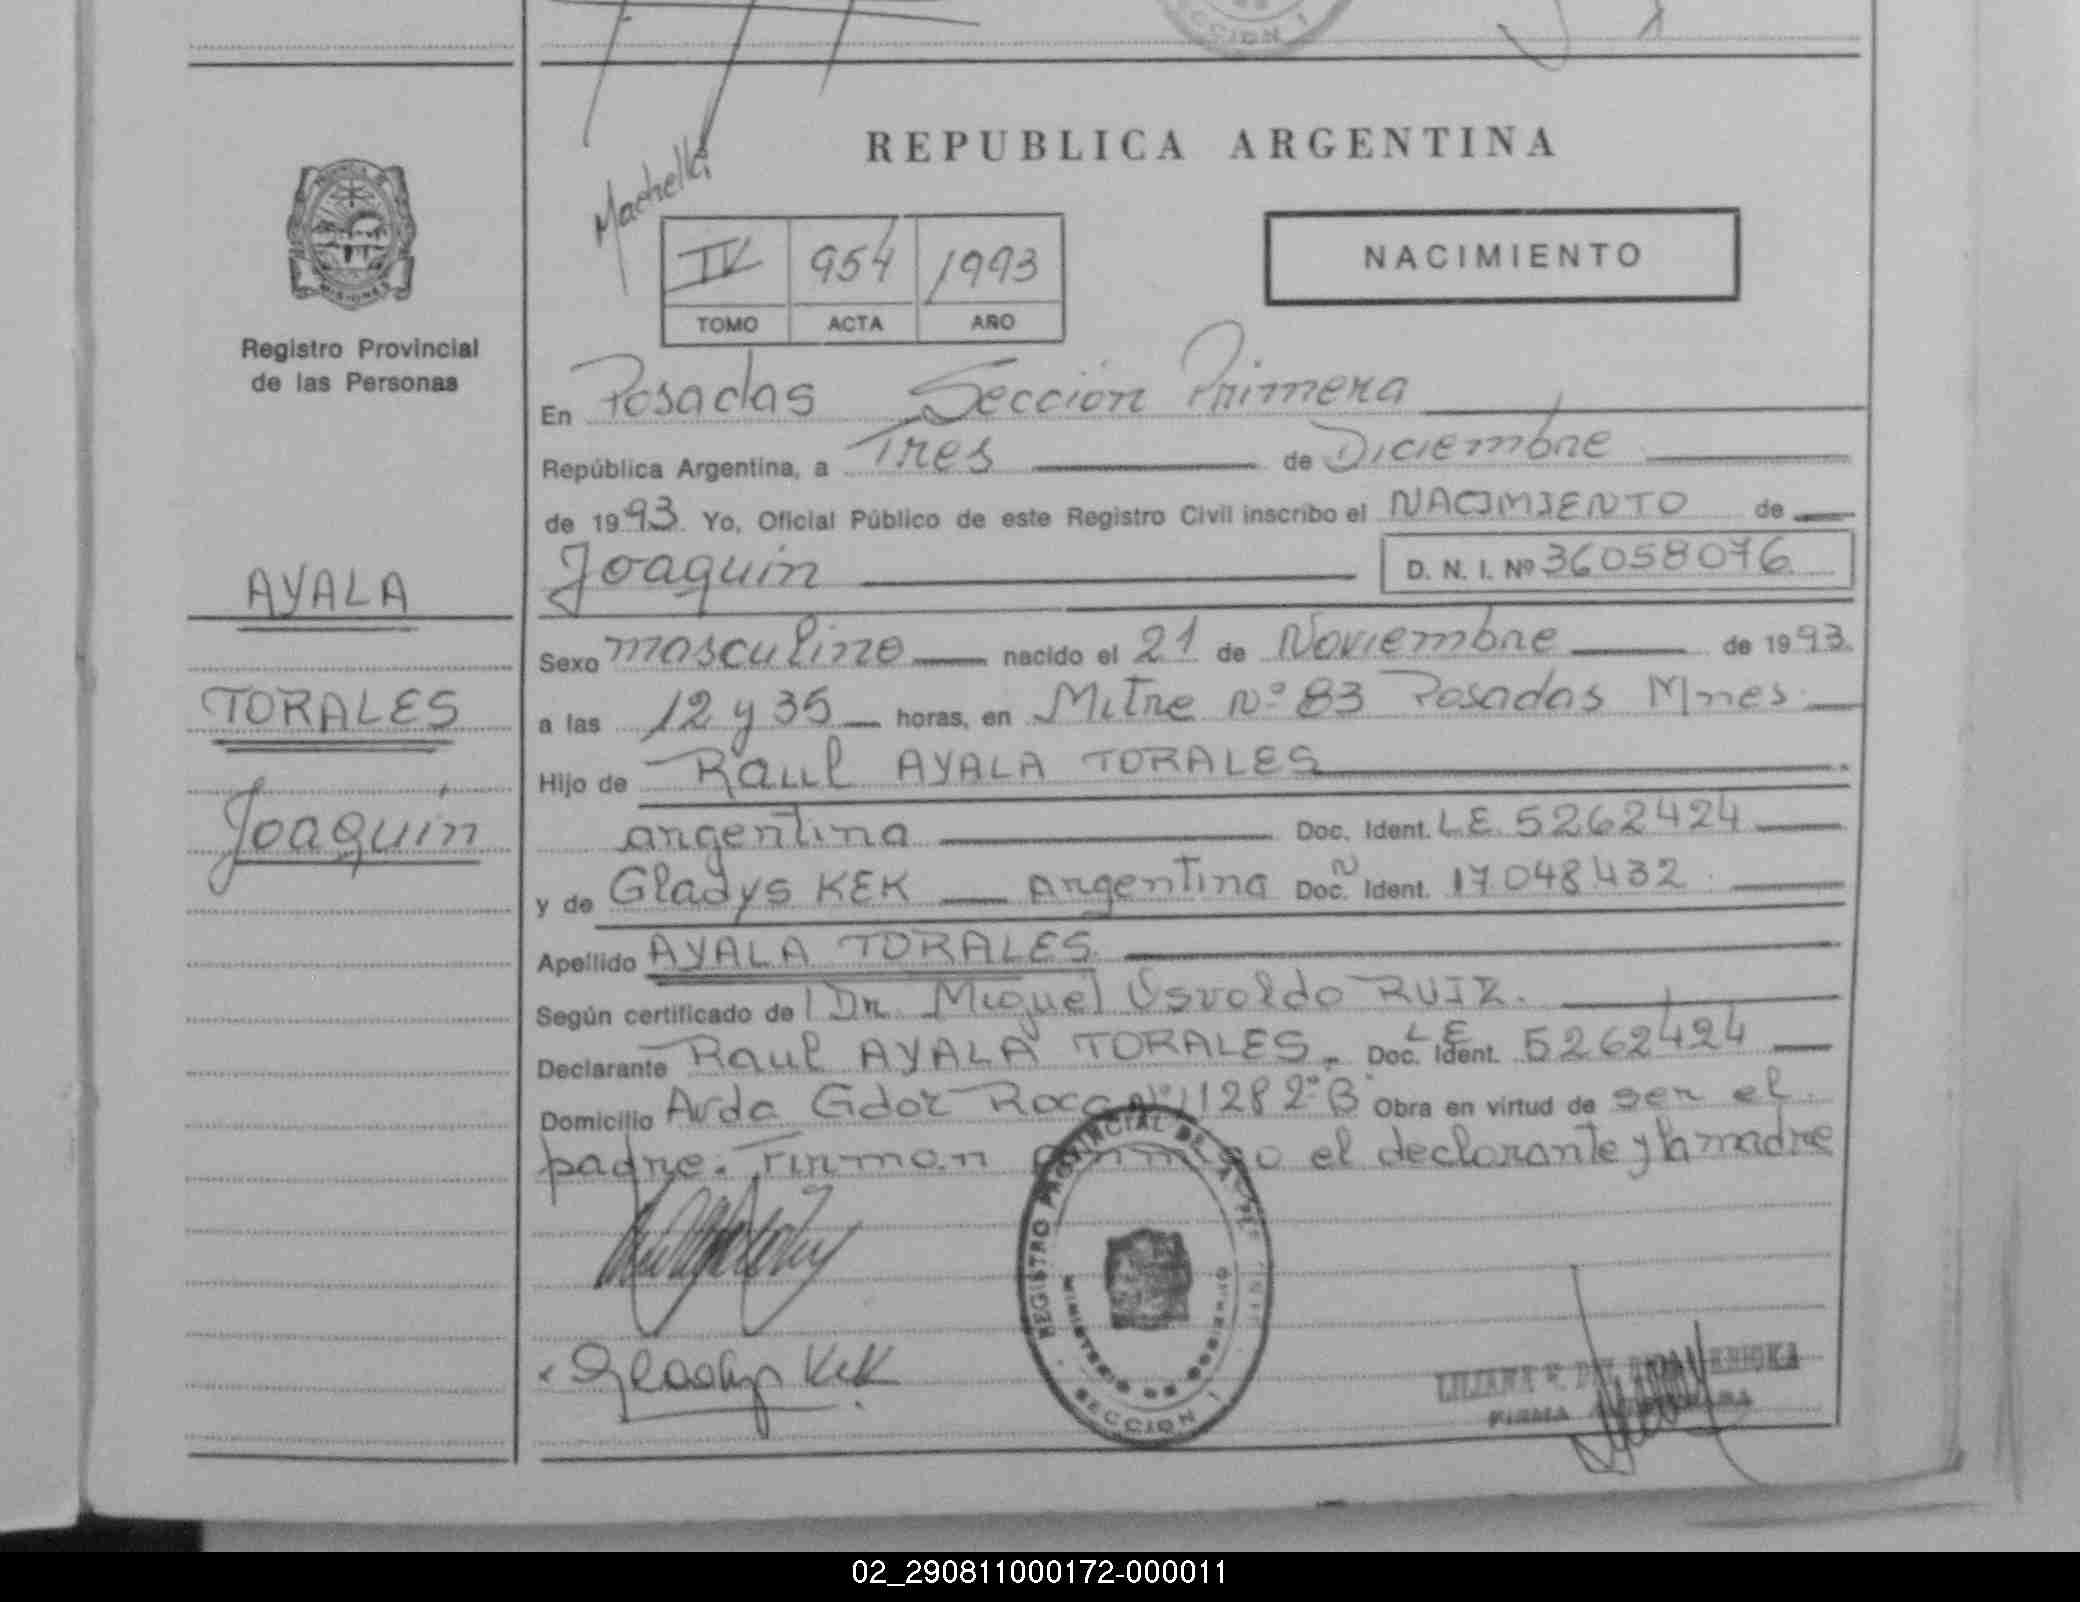 REPUBLICA ARGENTINA
NACIMIENTO
IV 954 1993
TOMO ACTA AÑO
MISIONES
Registro Provincial
de las Personas
AYALA
TORALES
Joaquín
En Posadas Sección Primera
República Argentina, a Tres de Diciembre
de 1993. Yo, Oficial Público de este Registro Civil inscribo el NACIMIENTO de
Joaquin D. N. I. Nº 36058076
Sexo masculino nacido el 21 de Noviembre de 1993.
a las 12 y 35 horas, en Mitre Nº 83 Posadas Mnes
Hijo de Raul AYALA TORALES
argentina Doc. Ident. LE 5262424
y de Gladys KEK argentina Doc. Ident. N 17.048.432
Apellido AYALA TORALES
Según certificado de Dr. Miguel Osvaldo RUIZ.
Declarante Raul AYALA TORALES. Doc. Ident. LE 5262424
Domicilio Avda Gdor Roca Nº 1128 2º B Obra en virtud de ser el
padre. Firman conmigo el declarante y la madre
REGISTRO PROVINCIAL DE LAS PERSONAS
MINISTERIO DE GOBIERNO
SECCION 1
Gladys Kek
LILIANA
FIRMA
02_290811000172-000011